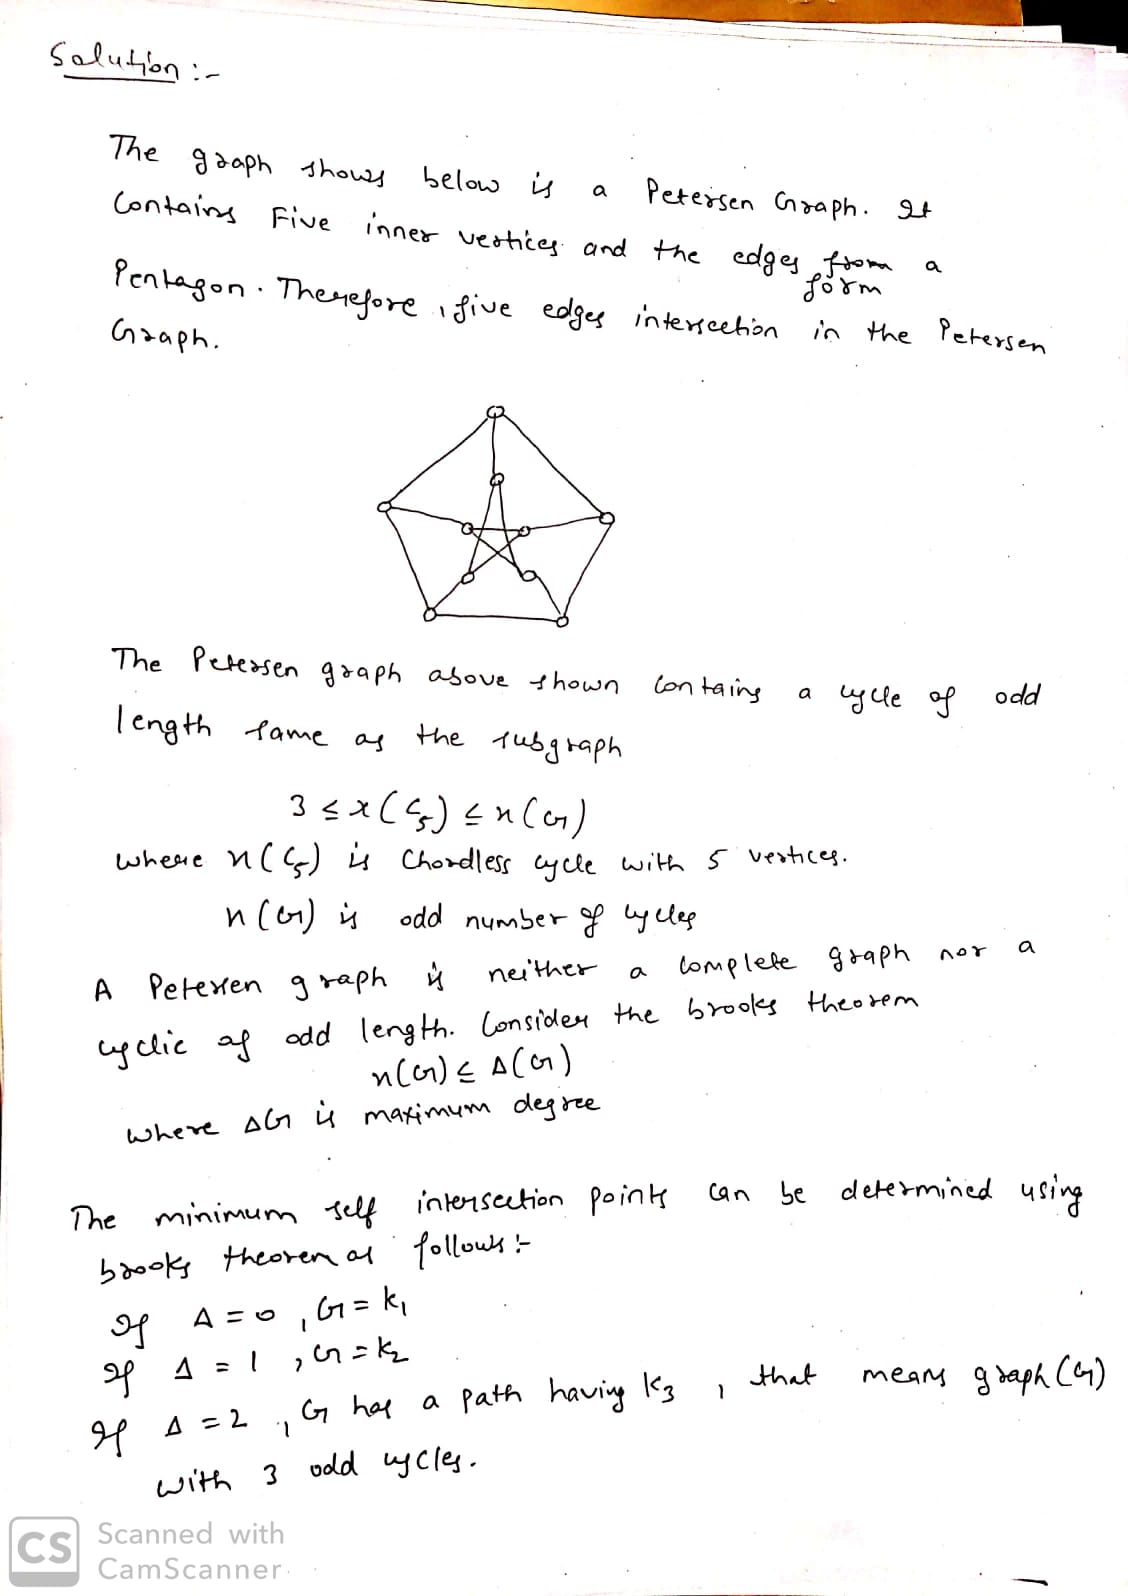 Solution :-
The graph shows below is a Petersen Graph. It
Contains Five inner vertices and the edges from a
form
Pentagon. Therefore, five edges intersection in the Petersen
Graph.
The Petersen graph above shown contains a cycle of odd
length same as the subgraph
3 ≤ x(C5) ≤ n(G)
where n(C5) is Chordless cycle with 5 vertices.
n(G) is odd number of cycles
A Petersen graph is neither a complete graph nor a
cyclic of odd length. Consider the brooks theorem
n(G) ≤ Δ(G)
where ΔG is maximum degree
The minimum self intersection points can be determined using
brooks theorem as follows :-
If Δ = 0, G = K1
If Δ = 1, G = K2
If Δ = 2, G has a path having K3, that means graph (G)
with 3 odd cycles.
CS Scanned with
CamScanner